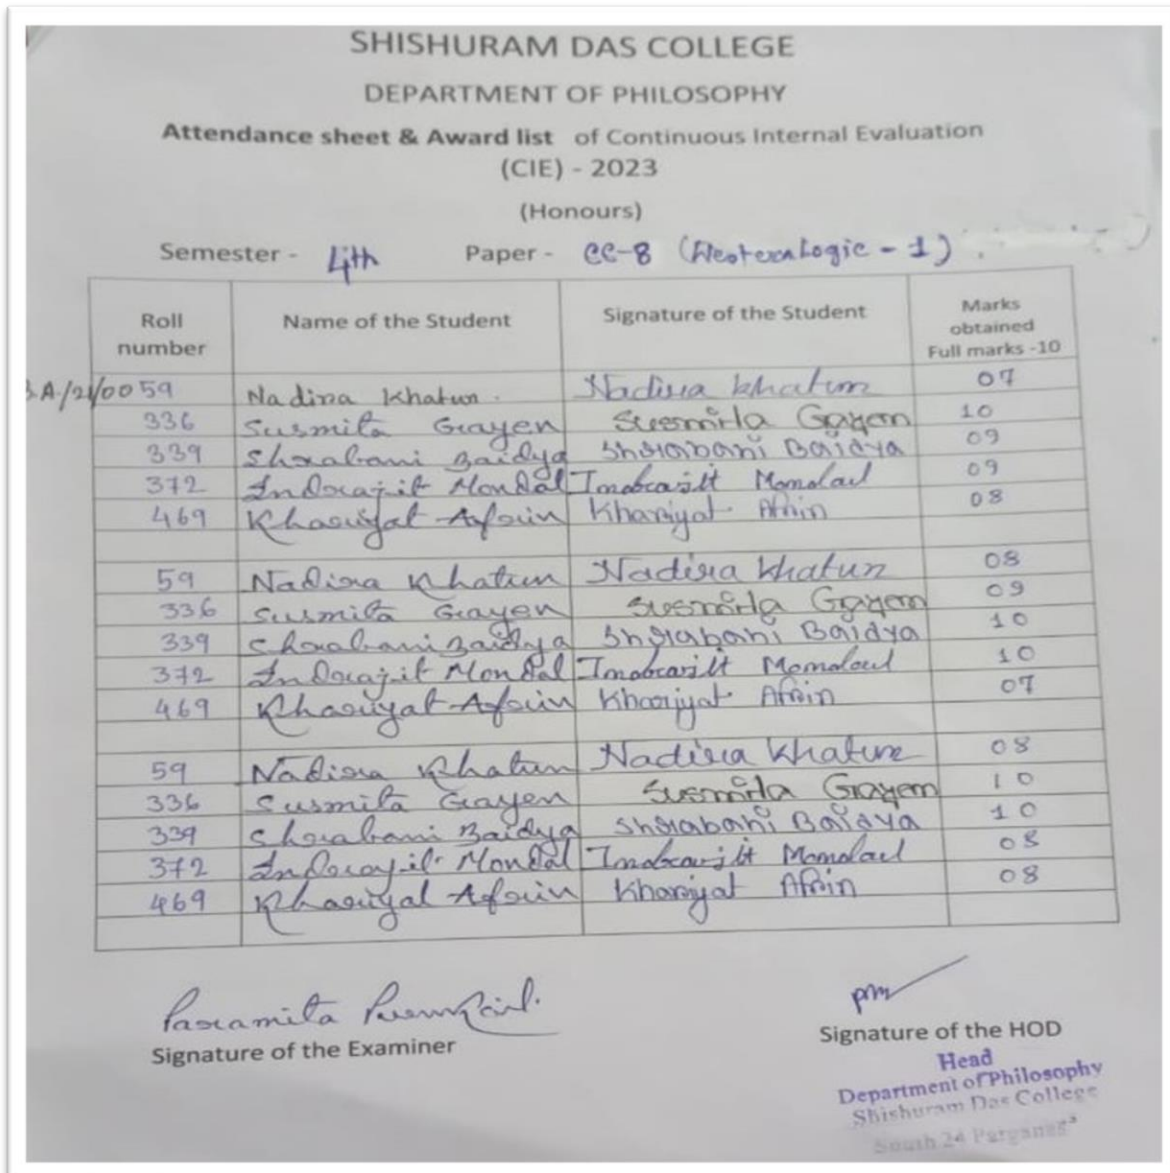 SHISHURAM DAS COLLEGE
DEPARTMENT OF PHILOSOPHY
Attendance sheet & Award list of Continuous Internal Evaluation
(CIE) - 2023
(Honours)
Semester - 4th Paper - CC-8 (Western Logic - 1)
Roll number Name of the Student Signature of the Student Marks obtained Full marks -10
B.A./21/0059 Nadira Khatun. Nadira Khatun 07
336 Susmita Gayen Susmita Gayen 10
339 Shrabani Baidya Shrabani Baidya 09
372 Indrajit Mondal Indrajit Mondal 09
469 Khariyat Afrin Khariyat Afrin 08
59 Nadira Khatun Nadira Khatun 08
336 Susmita Gayen Susmita Gayen 09
339 Shrabani Baidya Shrabani Baidya 10
372 Indrajit Mondal Indrajit Mondal 10
469 Khariyat Afrin Khariyat Afrin 07
59 Nadira Khatun Nadira Khatun 08
336 Susmita Gayen Susmita Gayen 10
339 Shrabani Baidya Shrabani Baidya 10
372 Indrajit Mondal Indrajit Mondal 08
469 Khariyat Afrin Khariyat Afrin 08
Paramita
Signature of the Examiner
Signature of the HOD
Head
Department of Philosophy
Shishuram Das College
South 24 Parganas